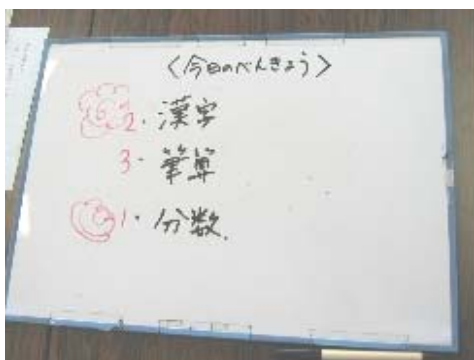 〈今日のべんきょう〉
2. 漢字
3. 筆算
1. 分数.